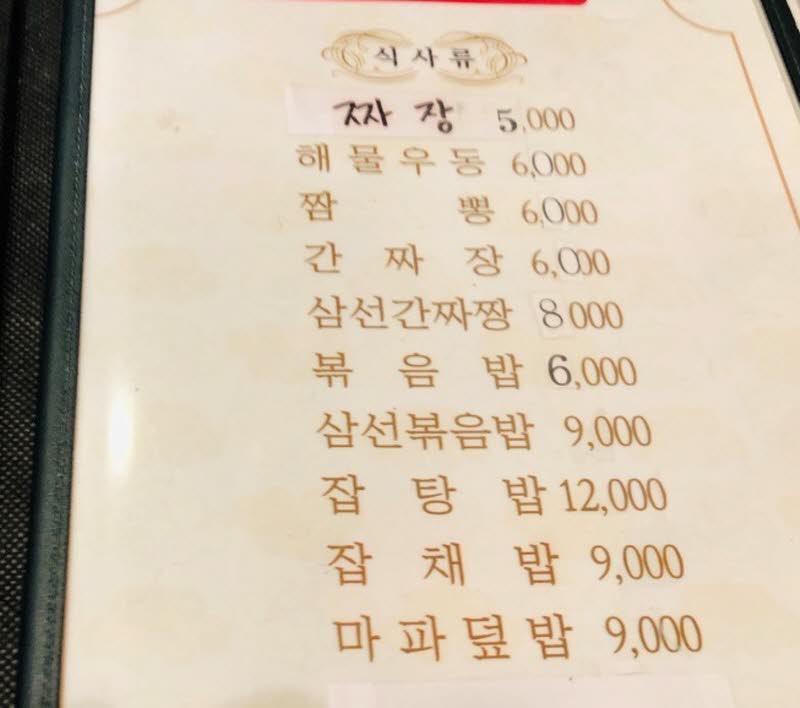 식사류
짜장 5,000
해물우동 6,000
짬뽕 6,000
간짜장 6,000
삼선간짜짱 8000
볶음밥 6,000
삼선볶음밥 9,000
잡탕밥 12,000
잡채밥 9,000
마파덮밥 9,000